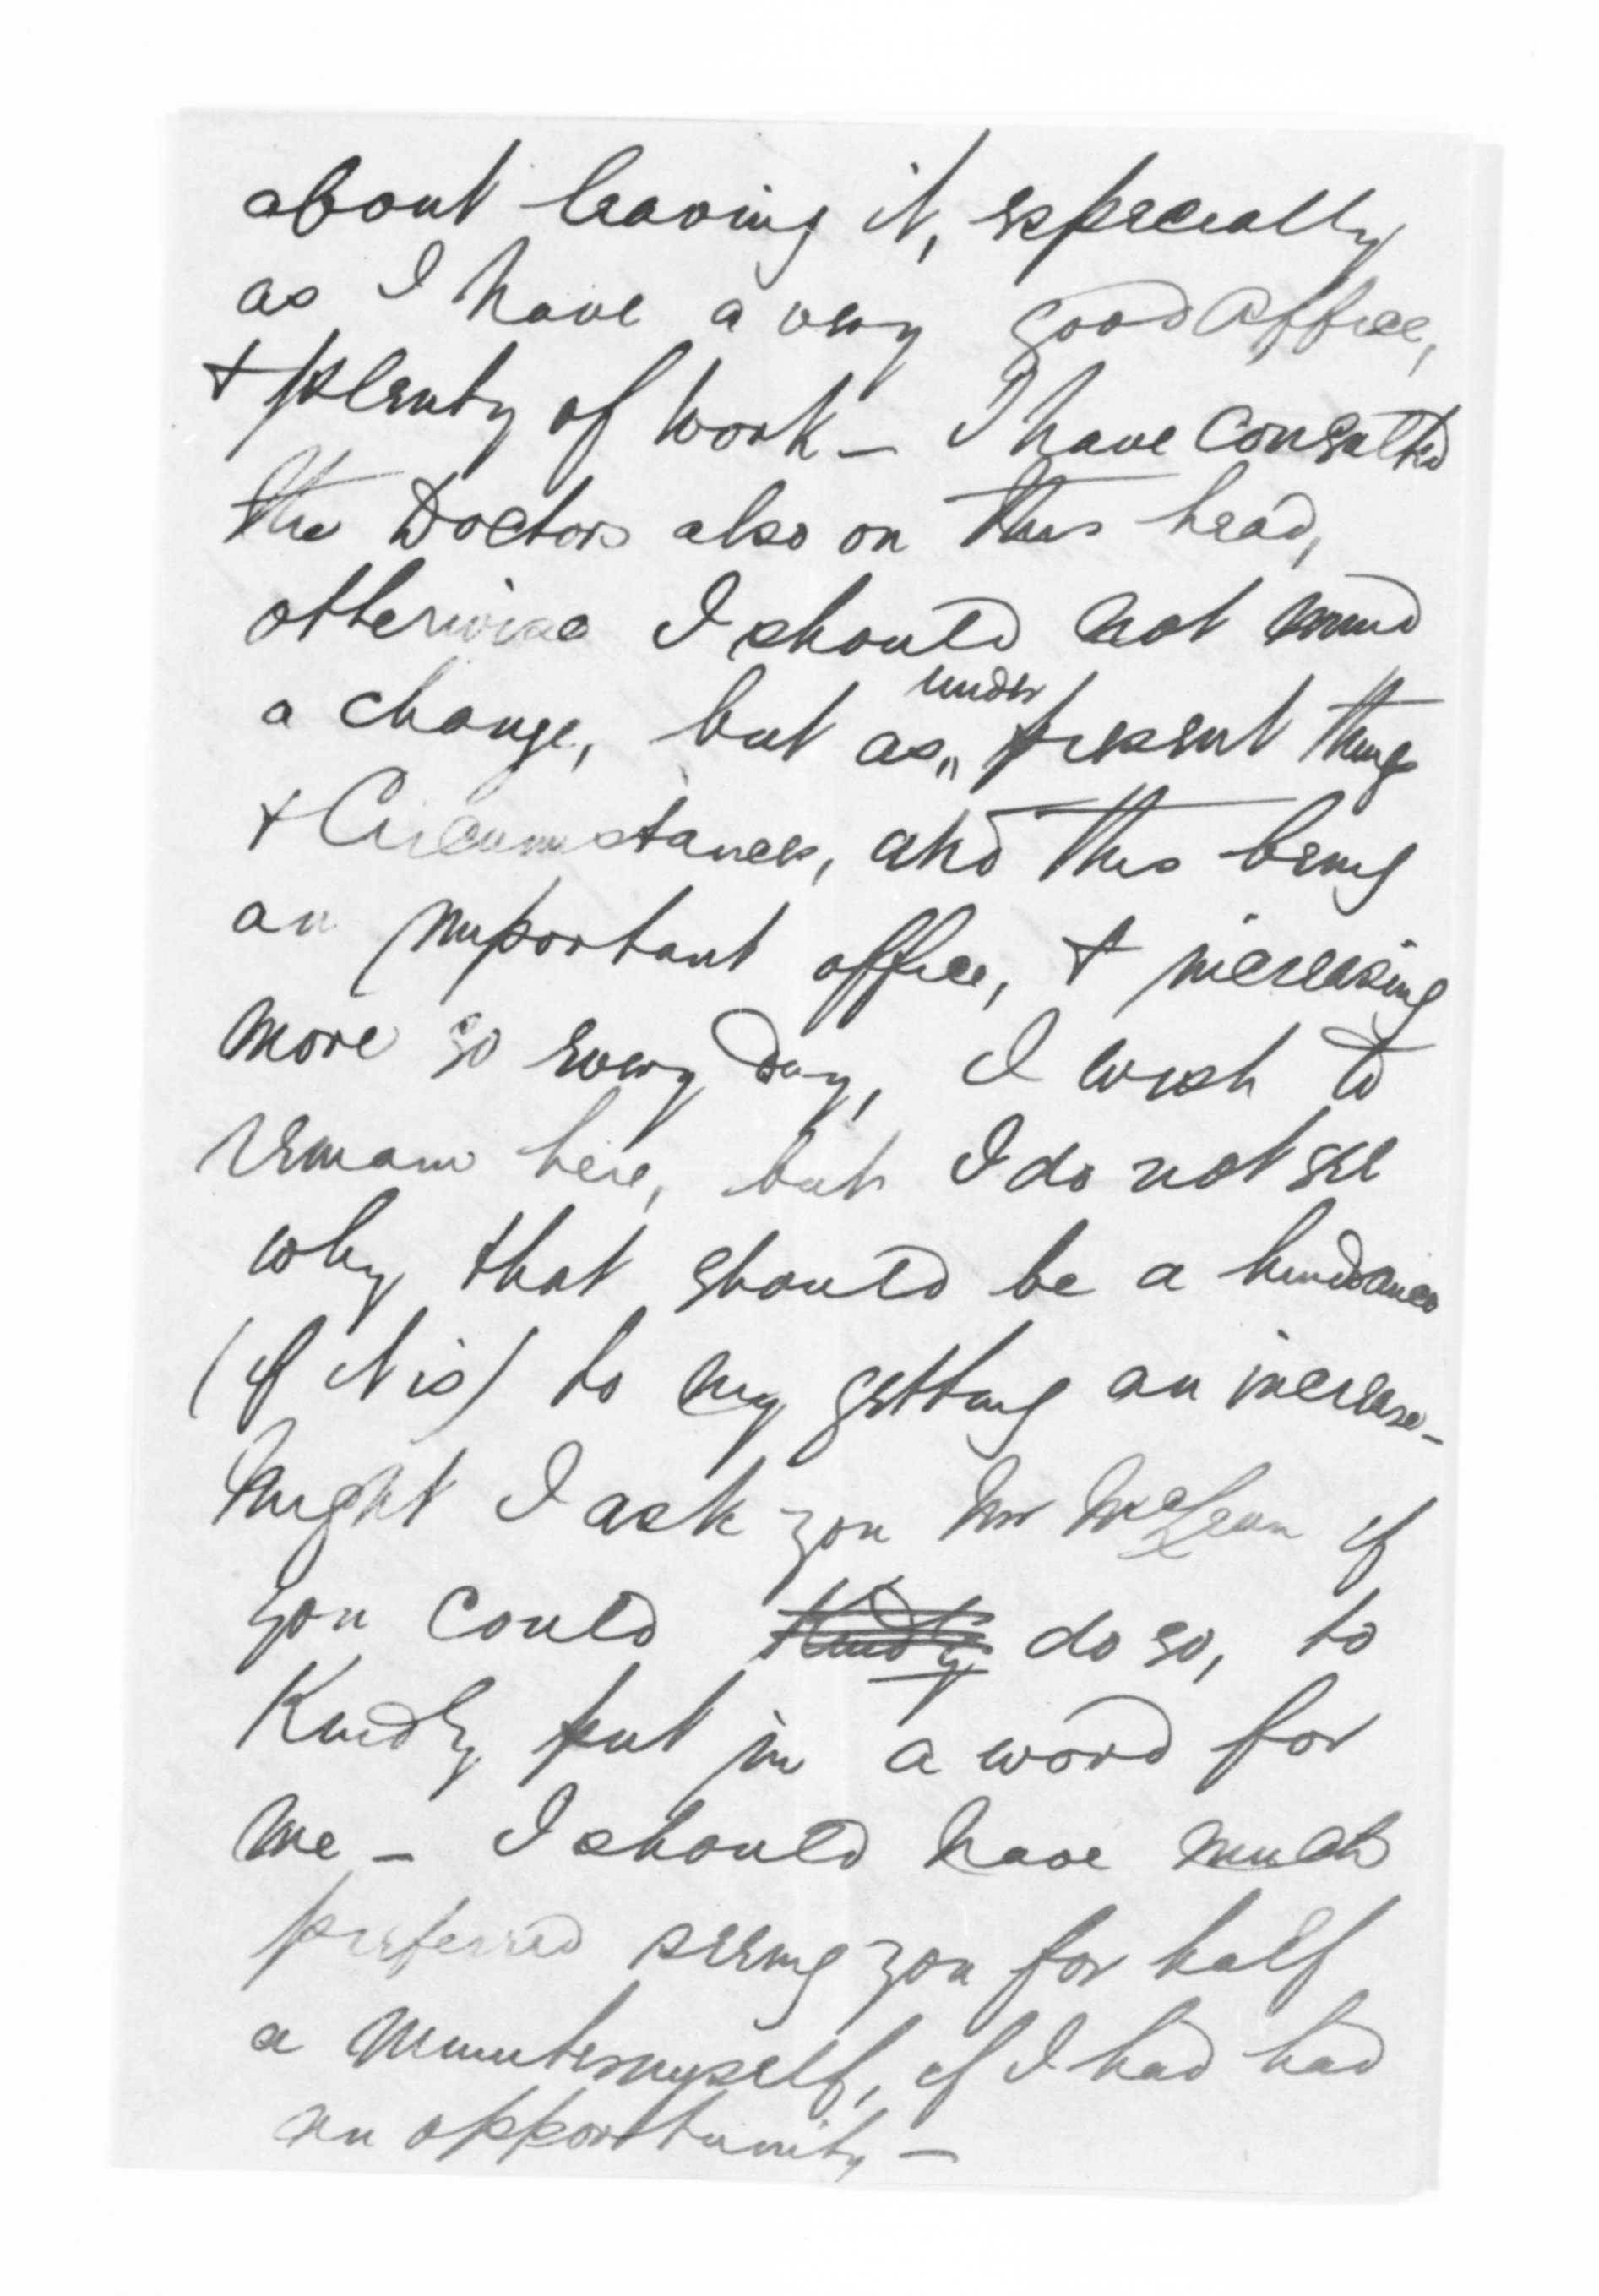 about leaving it, especially
as I have a very good Office,
+ plenty of work – I have consulted
the Doctors also on this head,
otherwise I should not mind
a change, but as under present things
+ Circumstances, and this being
an important office, + increasing
more so every day, I wish to
remain here, but I do not see
why that should be a hindrance
(if it is) to my getting an increase –
Might I ask you Mr McLean if
you could Kindly do so, to
Kindly put in a word for
me – I should have much
preferred seeing you for half
a minute myself, if I had had
an opportunity –